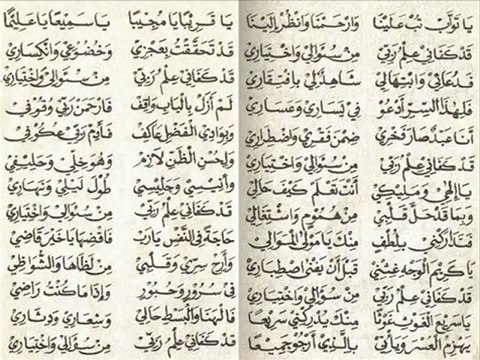 يَا تَوَّابُ تُبْ عَلَيْنَا وَارْحَمْنَا وَانْظُرْ إِلَيْنَا
قَدْ كَفَانِي عِلْمُ رَبِّي مِنْ سُؤَالِي وَاخْتِيَارِي
فَدُعَائِي وَابْتِهَالِي شَاهِدٌ لِي بِافْتِقَارِي
فَلِهٰذَا السِّرِّ أَدْعُو فِي يَسَارِي وَعَسَارِي
أَنَا عَبْدٌ صَارَ فَخْرِي ضِمْنَ فَقْرِي وَاضْطِرَارِي
قَدْ كَفَانِي عِلْمُ رَبِّي مِنْ سُؤَالِي وَاخْتِيَارِي
يَا إِلٰهِي وَمَلِيكِي أَنْتَ تَعْلَمُ كَيْفَ حَالِي
وَبِمَا قَدْ حَلَّ قَلْبِي مِنْ هُمُومٍ وَاشْتِغَالِي
فَتَدَارَكْنِي بِلُطْفٍ مِنْكَ يَا مَوْلَى الْمَوَالِي
يَا كَرِيمَ الْوَجْهِ غِثْنِي قَبْلَ أَنْ يَفْنَى اصْطِبَارِي
قَدْ كَفَانِي عِلْمُ رَبِّي مِنْ سُؤَالِي وَاخْتِيَارِي
يَا سَرِيعَ الْغَوْثِ غَوْثًا مِنْكَ يُدْرِكْنِي سَرِيعًا
يَهْزِمُ الْعُسْرَ وَيَأْتِي بِالَّذِي أَرْجُو جَمِيعًا
يَا قَرِيبًا يَا مُجِيبًا يَا سَمِيعًا يَا عَلِيمًا
قَدْ تَحَقَّقْتُ بِعَجْزِي وَخُضُوعِي وَانْكِسَارِي
قَدْ كَفَانِي عِلْمُ رَبِّي مِنْ سُؤَالِي وَاخْتِيَارِي
لَمْ أَزَلْ بِالْبَابِ وَاقِفْ فَارْحَمَنْ رَبِّي وُقُوفِي
وَبِوَادِي الْفَضْلِ عَاكِفْ فَأَدِمْ رَبِّي عُكُوفِي
وَلِحُسْنِ الظَّنِّ لَازِمْ وَهُوَ خِلِّي وَحَلِيفِي
وَأَنِيسِي وَجَلِيسِي طُولَ لَيْلِي وَنَهَارِي
قَدْ كَفَانِي عِلْمُ رَبِّي مِنْ سُؤَالِي وَاخْتِيَارِي
حَاجَةً فِي النَّفْسِ يَا رَبّ فَاقْضِهَا يَا خَيْرَ قَاضِي
وَأَرِحْ سِرِّي وَقَلْبِي مِنْ لَظَاهَا وَالشُّوَاظِ
فِي سُرُورٍ وَحُبُورٍ وَإِذَا مَا كُنْتَ رَاضِي
فَالْهَنَا وَالْبَسْطُ حَالِي وَشِعَارِي وَدِثَارِي
قَدْ كَفَانِي عِلْمُ رَبِّي مِنْ سُؤَالِي وَاخْتِيَارِي